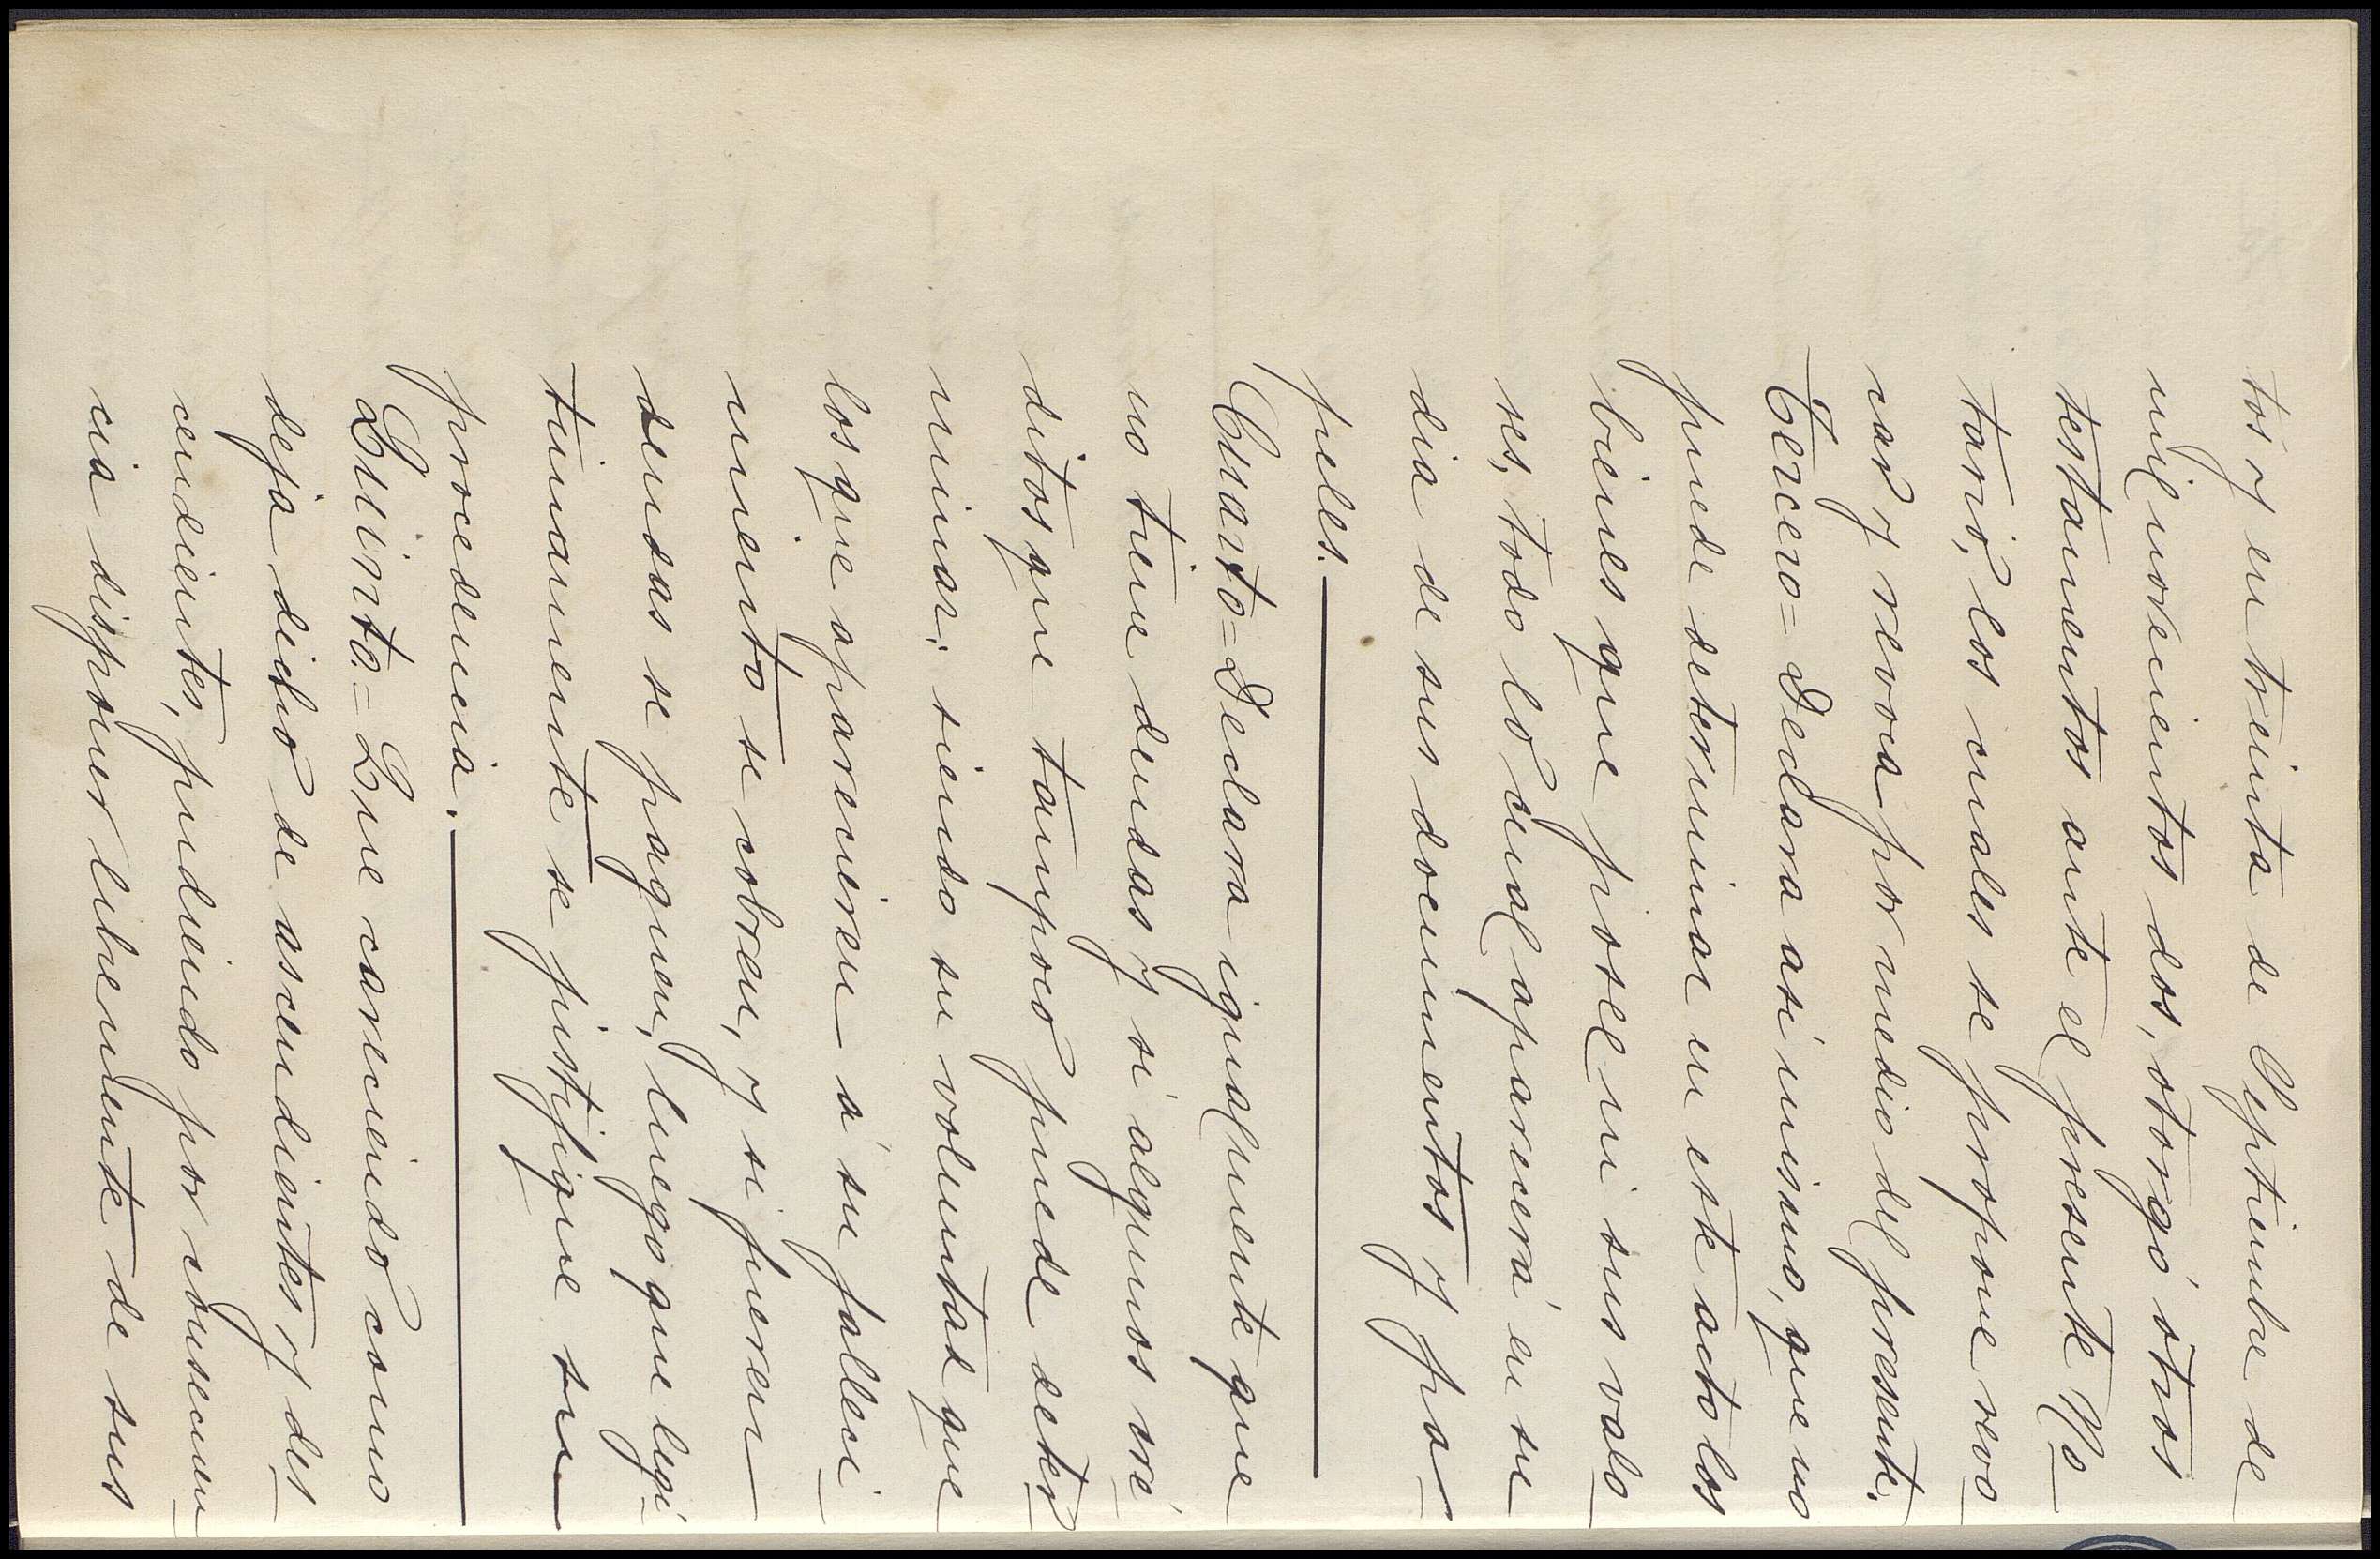 tos y en treinta de Septiembre de
mil novecientos dos, otorgó otros
testamentos ante el presente No
tario, los cuales se propone revo
car y revoca por medio del presente.
Tercero = Declara asi mismo, que no
puede determinar en este acto los
bienes que posee ni sus valo
res, todo lo cual aparecerá en su
dia de sus documentos y pa
peles.
Cuarto = Declara igualmente que
no tiene deudas y si algunos cré
ditos que tampoco puede deter
minar; siendo su voluntad que
los que aparecieren á su falleci
miento se cobren, y si fueren
deudas se paguen, luego que legi
timamente se justifique su
procedencia.
Quinto = Que careciendo como
deja dicho de ascendientes y des
cendientes, pudiendo por consecuen
cia disponer libremente de sus